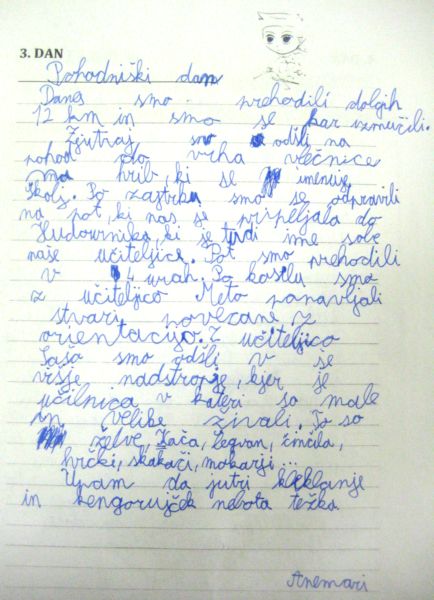 3. DAN
Pohodniški dan
Danes smo prehodili dolgih
12 km in smo se kar izmučili.
Zjutraj smo odšli na
pohod do vrha večnice
na hrib, ki se imenuje
Školj. Po zajtrku smo se odpravili
na pot, ki nas je pripeljala do
Hudournika, ki je tudi ime sobe
naše učiteljice. Pot smo prehodili
v 4 urah. Po kosilu smo
z učiteljico Meto ponavljali
stvari povezane z
orientacijo. Z učiteljico
Sašo smo odšli v še
višje nadstropje, kjer je
učilnica v kateri so male
in velike živali. To so
želve, kača, legvan, činčila,
hrčki, skakači, mokarji...
Upam da jutri kleklanje
in kengorujček nebota težka.
Anemari